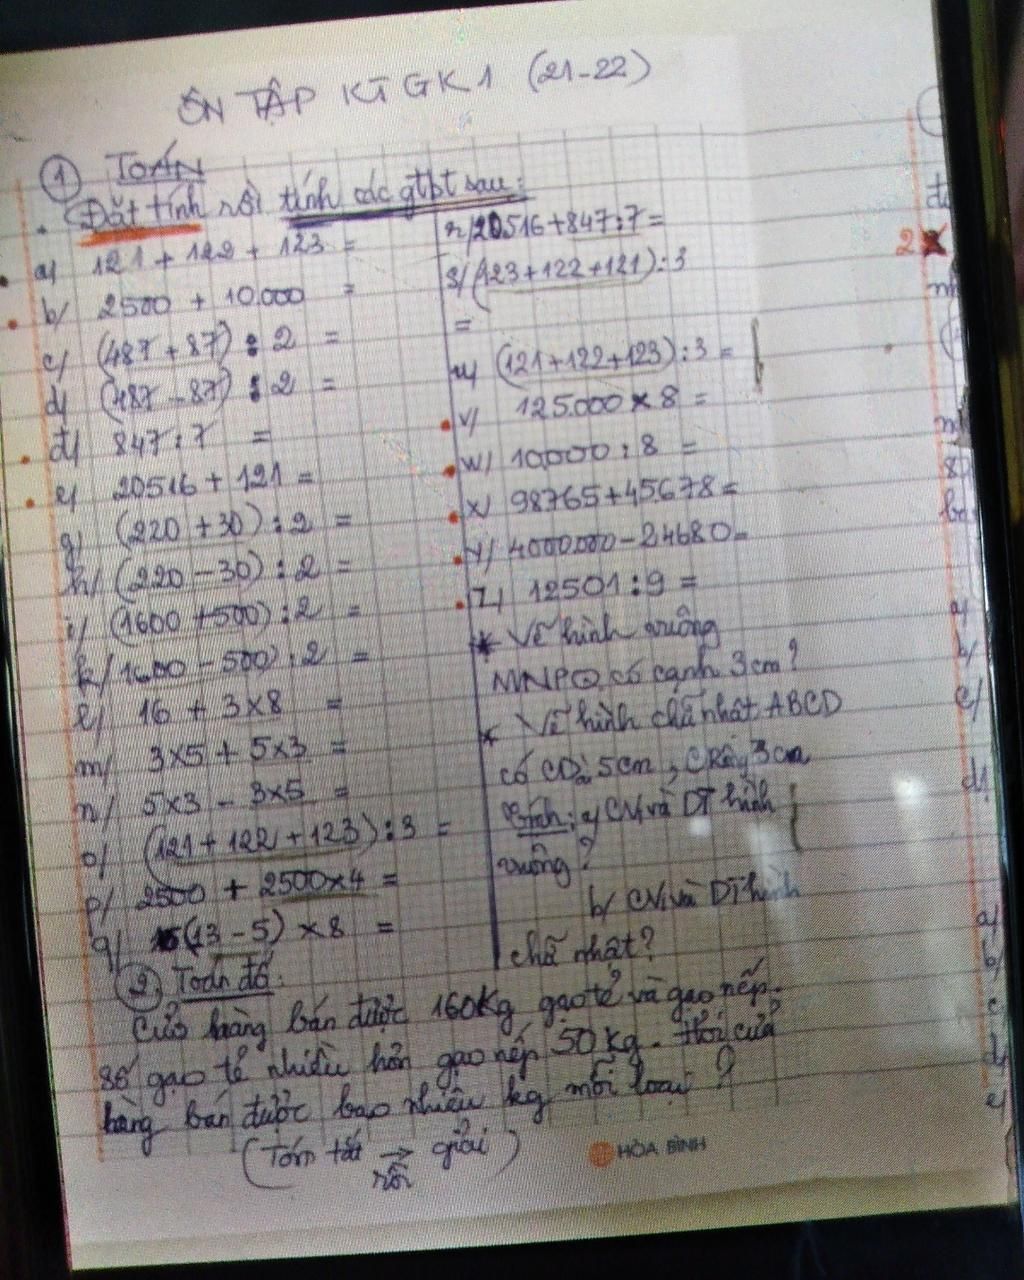 ÔN TẬP KT GK1 (21-22)
① TOÁN
Đặt tính rồi tính các gtbt sau:
a) 121 + 122 + 123 =
b/ 2500 + 10.000 =
c/ (487 + 87) : 2 =
d) (487 - 87) : 2 =
đ) 847 : 7 =
e) 20516 + 121 =
g) (220 + 30) : 2 =
h/ (220 - 30) : 2 =
i/ (1600 + 500) : 2 =
k/ 1600 - 500) : 2 =
l/ 16 + 3 x 8 =
m/ 3x5 + 5x3 =
n/ 5x3 - 3x5 =
o/ (121 + 122 + 123) : 3 =
p/ 2500 + 2500x4 =
q/ (13 - 5) x 8 =
r/ 20516 + 847 : 7 =
s/ (123 + 122 + 121) : 3
=
u/ (121 + 122 + 123) : 3 =
v/ 125.000 x 8 =
w/ 10.000 : 8 =
x/ 98765 + 45678 =
y/ 4000.000 - 24680 =
z/ 12501 : 9 =
* Vẽ hình vuông
MNPQ có cạnh 3cm?
* Vẽ hình chữ nhật ABCD
có CDài 5cm, CRộng 3cm
Tính: a/ CVi và DT hình
vuông?
b/ CVi và DT hình
chữ nhật?
② Toán đố:
Cửa hàng bán được 160Kg gạo tẻ và gạo nếp.
Số gạo tẻ nhiều hơn gạo nếp 50kg. Hỏi cửa
hàng bán được bao nhiêu kg mỗi loại?
(Tóm tắt → giải)
rồi
HÒA BÌNH
2
a)
b/
c/
d)
a)
b/
c
d/
e/